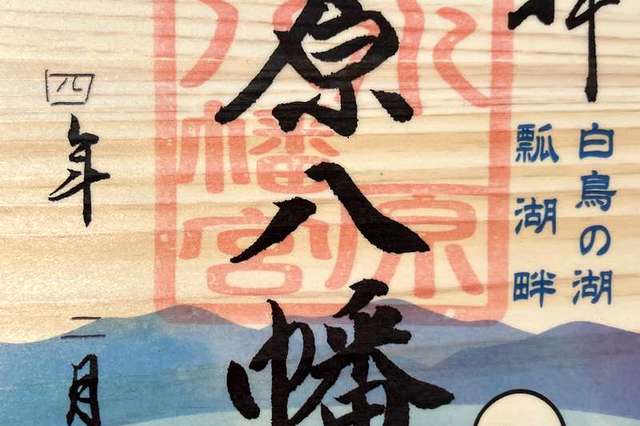 白鳥の湖
瓢湖畔
原八幡
原
幡宮
四年二月